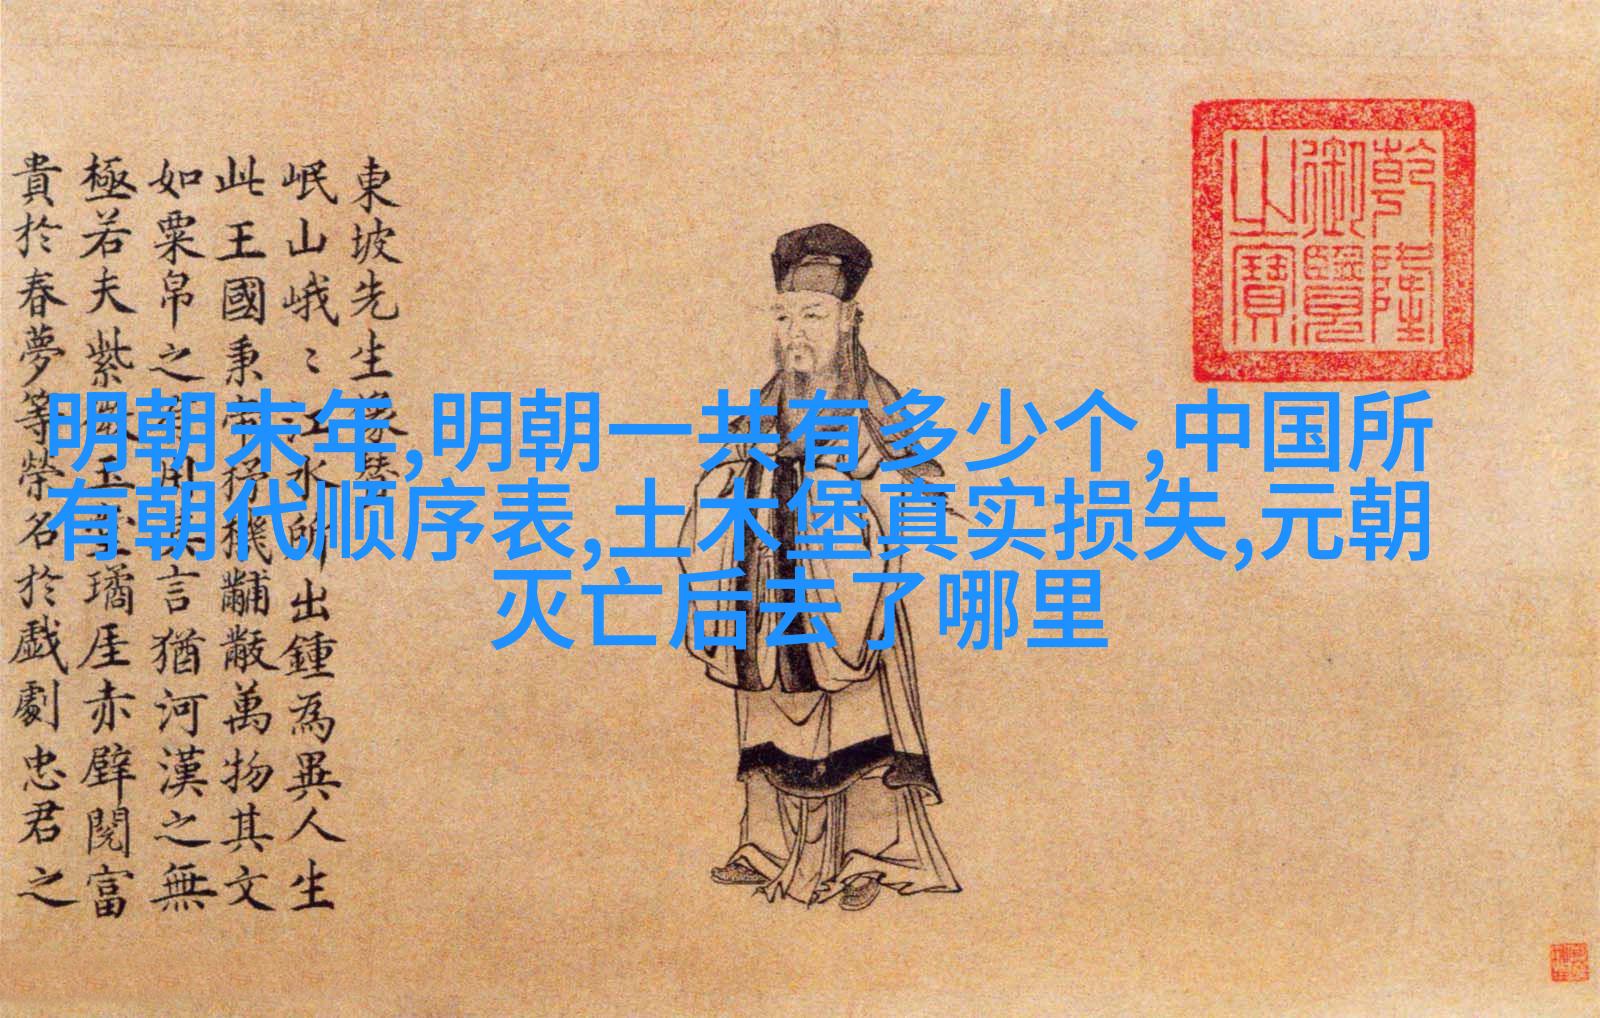 明朝末年,明朝一共有多少个,中国所
有朝代顺序表,土木堡真实损失,元朝
灭亡后去了哪里
東坡先生像贊
岷山峨〻江水所出鍾為異人生
此王國秉帝杼機黼黻萬物其文
如粟帛之有用其言猶河漢之無
極若夫紫微玉堂璚厓赤壁閱富
貴於春夢等榮名於戲劇忠君之
乾隆
御覽
之寶